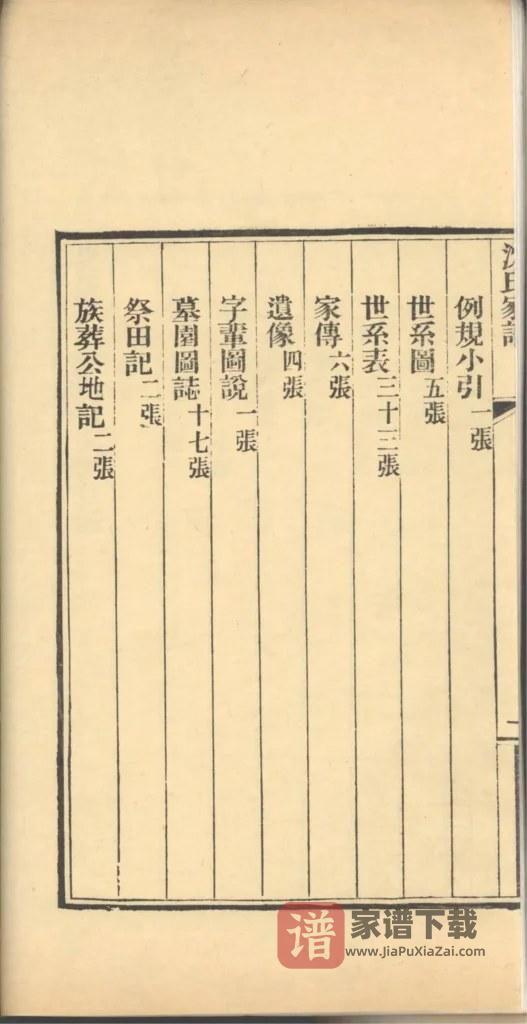 沈氏家譜
例規小引 一張
世系圖 五張
世系表 三十三張
家傳 六張
遺像 四張
字輩圖說 一張
墓園圖誌 十七張
祭田記 二張
族葬公地記 二張
一
谱 家谱下载
www.JiaPuXiaZai.com